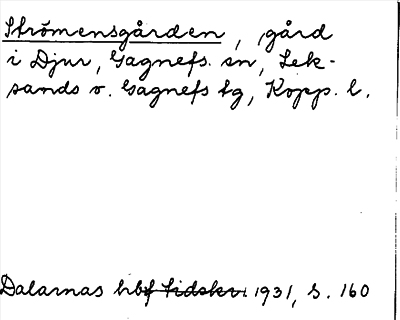 Strömensgården, gård
i Djur, Gagnefs sn, Lek-
sands o. Gagnefs tg, Kopp. l.
Dalarnas hbf tidskr. 1931, s. 160